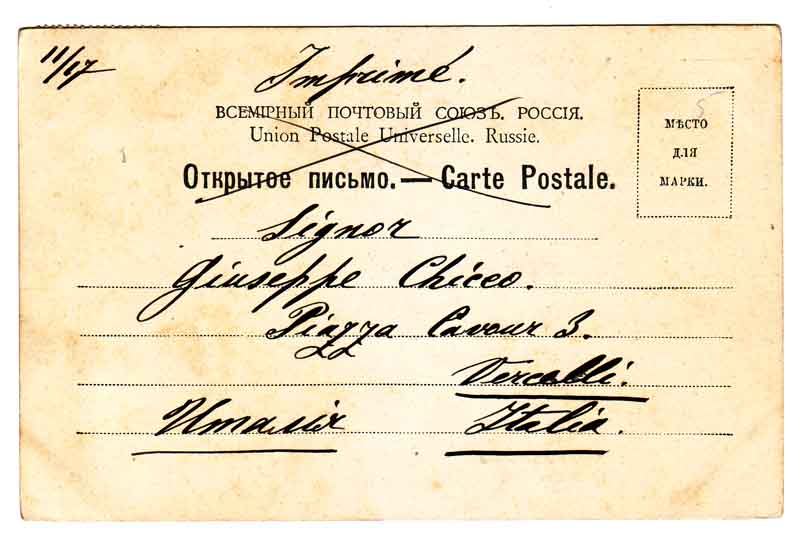 11/17
Imprimé.
ВСЕМІРНЫЙ ПОЧТОВЫЙ СОЮЗЪ. РОССІЯ.
Union Postale Universelle. Russie.
Открытое письмо. — Carte Postale.
МѢСТО
ДЛЯ
МАРКИ.
Signor
Giuseppe Chicco.
Piazza Cavour 3.
Vercelli.
Италія Italia.